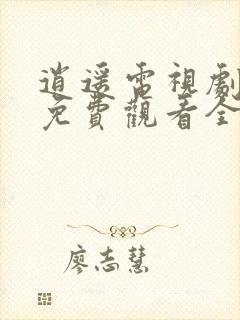 逍遥電視劇
免費觀看全
廖志慧